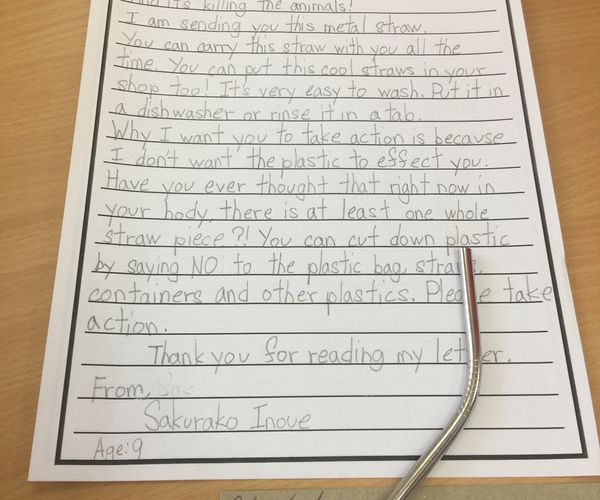 And it's killing the animals!
I am sending you this metal straw.
You can carry this straw with you all the
time. You can put this cool straws in your
shop too! It's very easy to wash. Put it in
a dishwasher or rinse it in a tab.
Why I want you to take action is because
I don't want the plastic to effect you.
Have you ever thought that right now in
your body, there is at least one whole
straw piece?! You can cut down plastic
by saying NO to the plastic bag, straw,
containers and other plastics. Please take
action.
Thank you for reading my letter.
From, Sak
Sakurako Inoue
Age:9